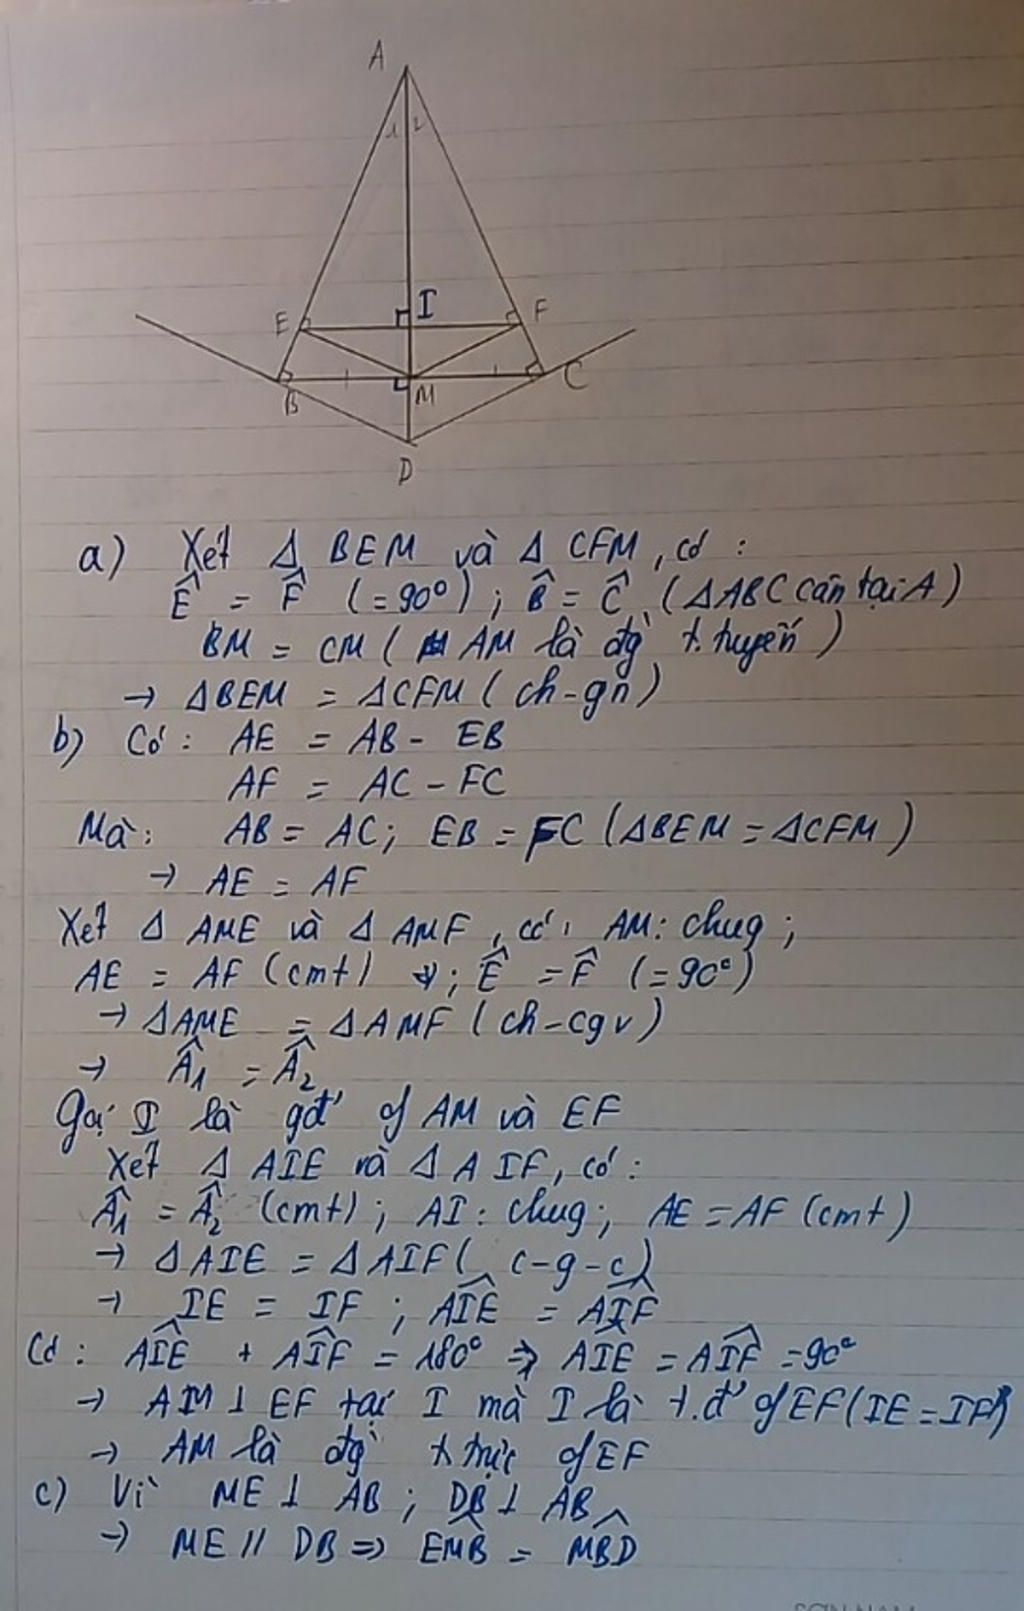 A
1 2
E I F
B M C
D
a) Xét Δ BEM và Δ CFM, có :
Ê = F̂ (= 90°) ; B̂ = Ĉ (ΔABC cân tại A)
BM = CM ( AM là đg` t.tuyến )
→ ΔBEM = ΔCFM ( ch - gn )
b) Có : AE = AB - EB
AF = AC - FC
Mà : AB = AC ; EB = FC (ΔBEM = ΔCFM )
→ AE = AF
Xét Δ AME và Δ AMF , có : AM : chug ;
AE = AF (cmt) ; Ê = F̂ (= 90°)
→ ΔAME = ΔAMF ( ch - cgv )
→ Â₁ = Â₂
Gọi I là gđ' of AM và EF
Xét Δ AIE và Δ AIF, có :
Â₁ = Â₂ (cmt) ; AI : chug ; AE = AF (cmt)
→ ΔAIE = ΔAIF ( c - g - c )
→ IE = IF ; AIÊ = AIF̂
Có : AIÊ + AIF̂ = 180° ⇒ AIÊ = AIF̂ = 90°
→ AM ⊥ EF tại I mà I là t.đ' of EF (IE = IF)
→ AM là đg` t.trực of EF
c) Vì ME ⊥ AB ; DB ⊥ AB
→ ME // DB ⇒ EMB̂ = MBD̂